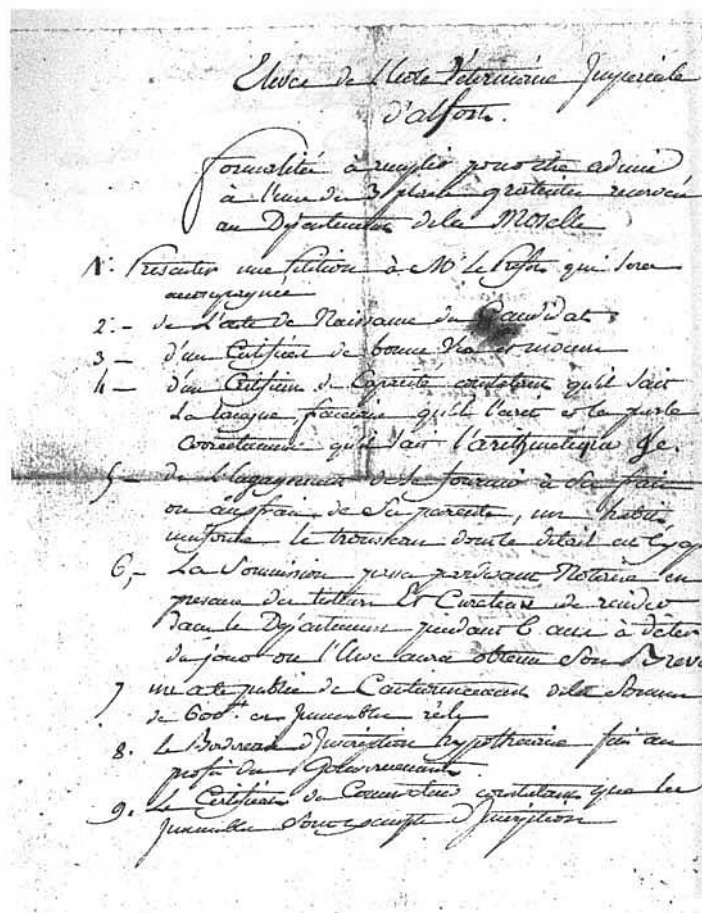 Elève de l'Ecole Vétérinaire Imperiale
d'alfort.
formalités à remplir pour être admis
à l'une des 3 places gratuites reservées
au Département de la Moselle
1.° Presenter une Pétition à Mr. le Prefet qui sera
accompagnée
2. - de l'acte de Naissance du Candidat
3 - d'un Certificat de bonne Vie et moeurs
4 - d'un Certificat de Capacité constatant qu'il sait
la langue francaise qu'il l'ecrit et la parle
correctement qu'il sait l'arithmetique &c.
5 - de l'Engagement de se fournir à ses frais
ou aux frais de ses parents, un habit
uniforme le trousseau dont le détail est cy ap
6, - La Soumission passée pardevant Notaire en
presence des tuteurs Et Curateurs de resider
dans le Département pendant 6 ans à dater
du jour ou l'Eleve aura obtenu Son Breve
7 un acte public de Cautionnement de la Somme
de 600 en Immeubles réels
8. le Bordereau d'Inscription hypothécaire fait au
profit du Gouvernement
9. le Certificat du Conservateur constatant que les
Immeubles sont exempts d'Inscription